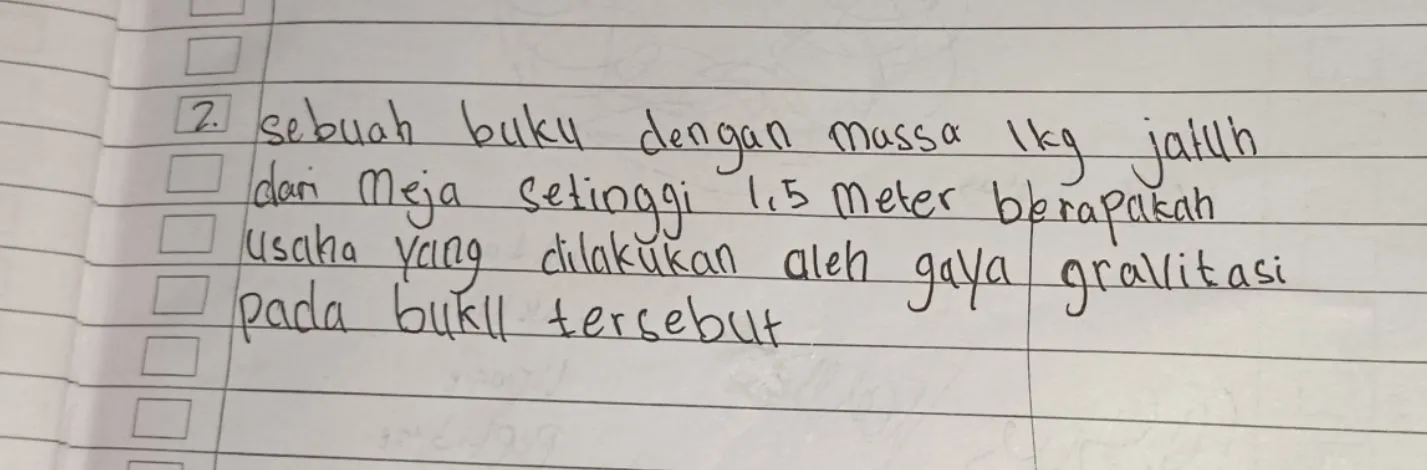 2. sebuah buku dengan massa 1kg jatuh
dari meja setinggi 1,5 meter berapakah
usaha yang dilakukan oleh gaya gravitasi
pada buku tersebut